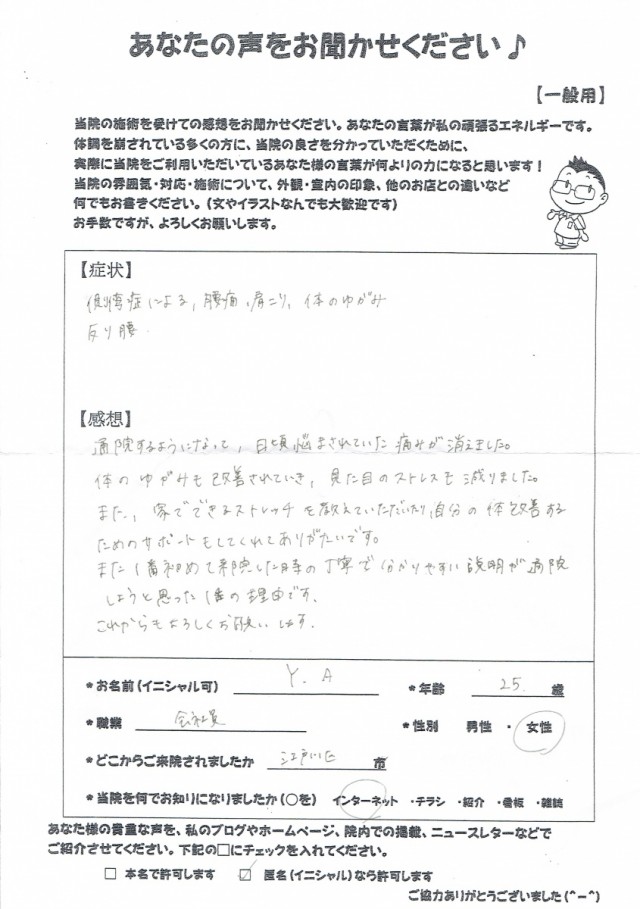 あなたの声をお聞かせください♪
【一般用】
当院の施術を受けての感想をお聞かせください。あなたの言葉が私の頑張るエネルギーです。
体調を崩されている多くの方に、当院の良さを分かっていただくために、
実際に当院をご利用いただいているあなた様の言葉が何よりの力になると思います！
当院の雰囲気・対応・施術について、外観・室内の印象、他のお店との違いなど
何でもお書きください。(文やイラストなんでも大歓迎です)
お手数ですが、よろしくお願いします。
【症状】
側弯症による, 腰痛, 肩こり, 体のゆがみ
反り腰
【感想】
通院するようになって, 日頃悩まされていた痛みが消えました。
体のゆがみも改善されていき, 見た目のストレスも減りました。
また, 家でできるストレッチを教えていただいたり, 自分の体を改善する
ためのサポートもしてくれてありがたいです。
また1番初めて来院した時の丁寧で分かりやすい説明が通院
しようと思った1番の理由です。
これからもよろしくお願いします。
*お名前(イニシャル可) Y. A *年齢 25 歳
*職業 会社員 *性別 男性 ・ 女性
*どこからご来院されましたか 江戸川区 市
*当院を何でお知りになりましたか(○を) インターネット ・チラシ ・紹介 ・看板 ・雑誌
あなた様の貴重な声を、私のブログやホームページ、院内での掲載、ニュースレターなどで
ご紹介させてください。下記の□にチェックを入れてください。
□ 本名で許可します ☑ 匿名(イニシャル)なら許可します
ご協力ありがとうございました(^-^)